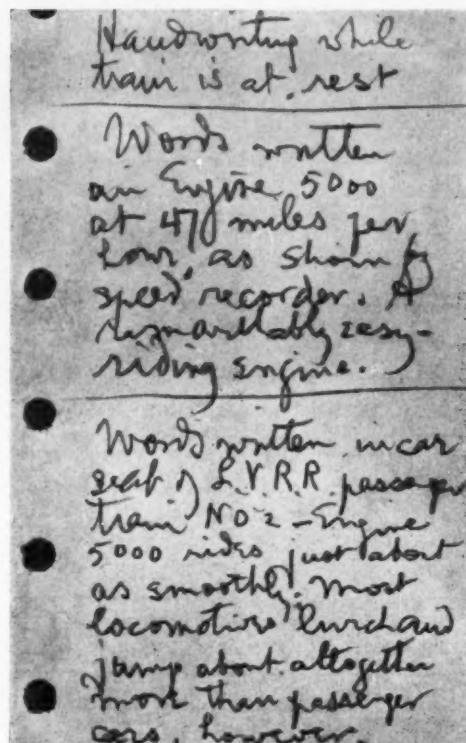 Handwriting while
train is at rest
Words written
on Engine 5000
at 47 miles per
hour, as shown by
speed recorder. A
remarkably easy-
riding engine.
Words written in car
seat of L.V.R.R. passenger
train No 2 - Engine
5000 rides just about
as smoothly. Most
locomotives lurch and
jump about altogether
more than passenger
cars, however.